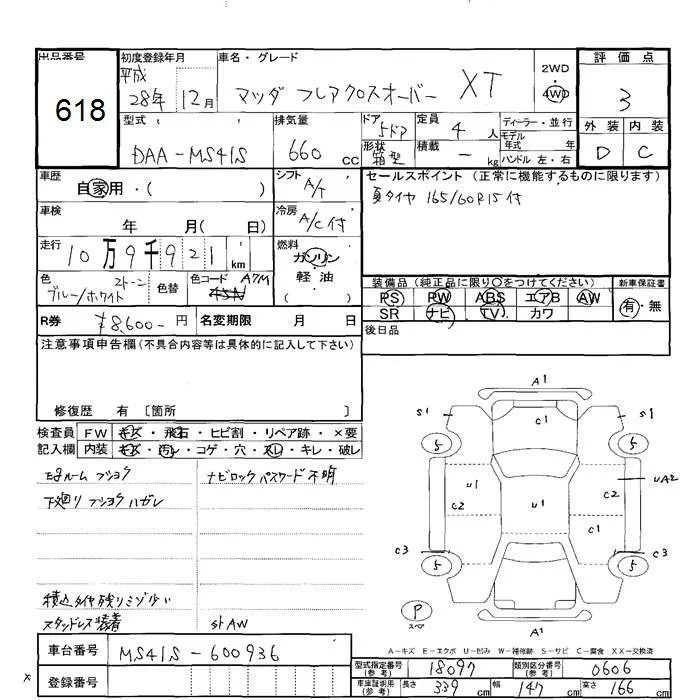 出品番号
618
初度登録年月
平成
28年 12月
車名・グレード
マツダ フレアクロスオーバー XT
2WD
4WD
評価点
3
外装 内装
D C
型式
DAA-MS41S
排気量
660 cc
ドア
5ドア
形状
箱型
定員
4 人
積載
- kg
ディーラー・並行
モデル
年式 年
ハンドル 左・右
車歴
自家用・( )
シフト
A/T
車検
年 月( 日)
冷房
A/C付
走行
10万9千921 km
燃料
ガソリン
軽油
( )
色
ブルー/ホワイト
2トーン
色替
色コード A7M
R券 ¥8,600- 円 名変期限 月 日
セールスポイント (正常に機能するものに限ります)
夏タイヤ 165/60R15付
装備品(純正品に限り○をつけてください)
PS PW ABS エアB AW
SR ナビ TV カワ
新車保証書
有・無
後日品
注意事項申告欄(不具合内容等は具体的に記入して下さい)
修復歴 有 〔箇所 〕
検査員
記入欄
FW キズ・飛石・ヒビ割・リペア跡・×要
内装 キズ・汚レ・コゲ・穴・スレ・キレ・破レ
ナビロックパスワード不明
下廻りフショクハガレ
スタッドレス装着
社AW
車台番号 MS41S-600936
登録番号
A1
S1 C1 S1
5 5
UA2
C2 U1 U1 C2
C1
C3 C3
5 5
P
スペア
A1
A-キズ E-エクボ U-凹み W-補修跡 S-サビ C-腐食 XX-交換済
型式指定番号
(参考)
18097
類別区分番号
(参考)
0606
車庫証明用
(参考)
長さ 339 cm 幅 147 cm 高さ 166 cm
x